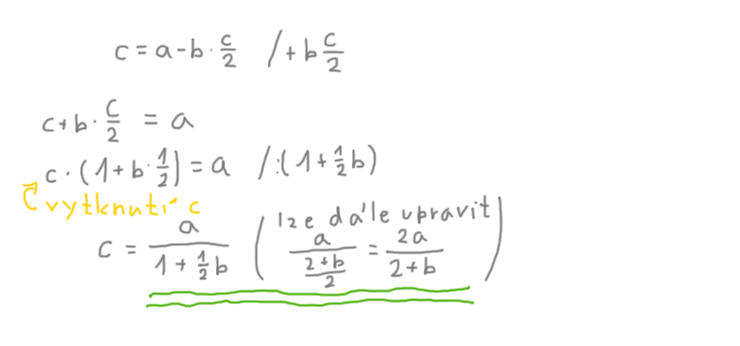 c = a - b · c/2 / + b c/2
c + b · c/2 = a
c · (1 + b · 1/2) = a / : (1 + 1/2 b)
vytknutí c
c = a / (1 + 1/2 b) ( lze dále upravit a / ((2+b)/2) = 2a / (2+b) )